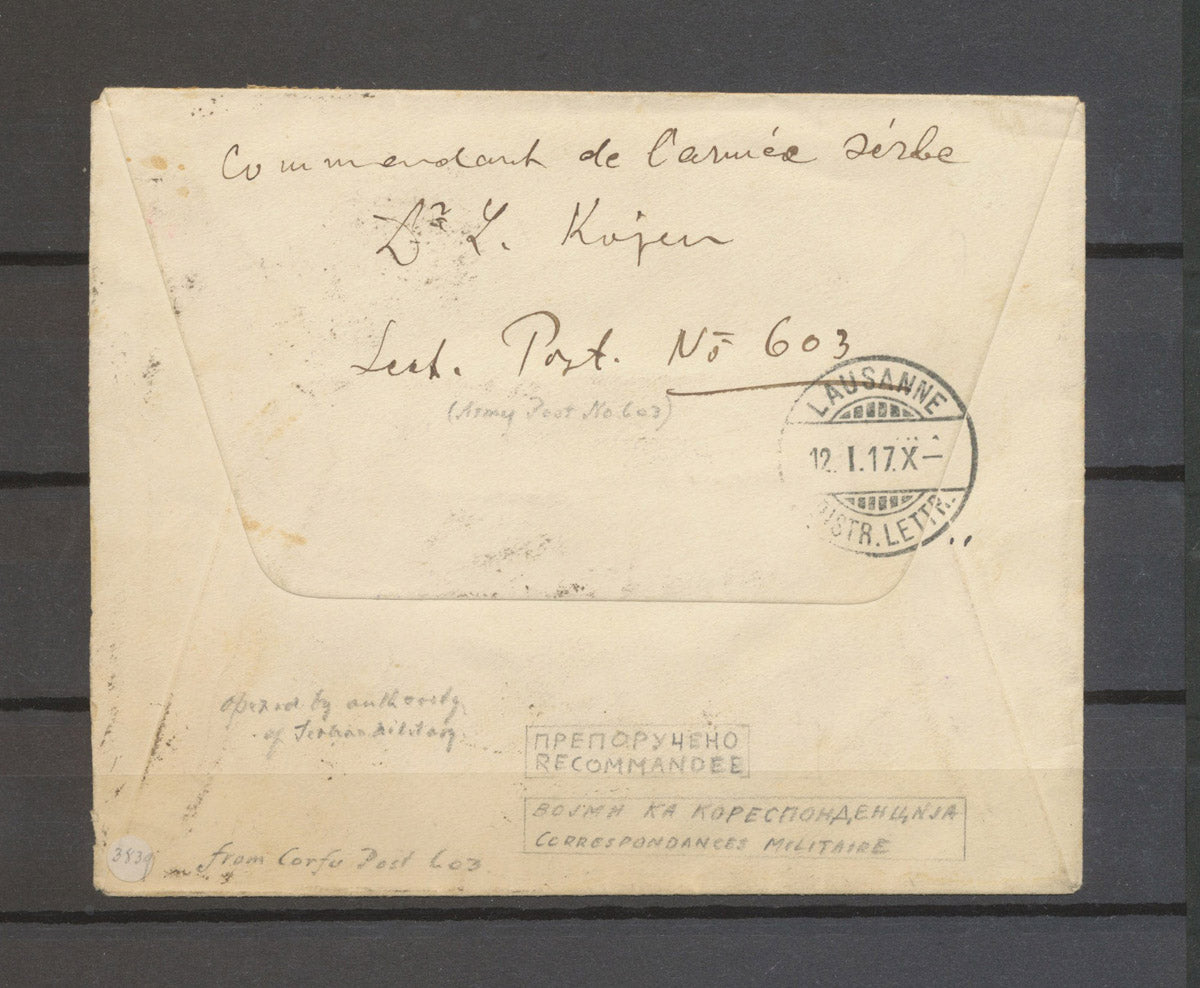 Commendant de l'armée sérbe
Dr L. Kojen
Sect. Post. No 603
(Army Post No 603)
LAUSANNE
12. I. 17. X–
DISTR. LETTR.
opened by authority
of Serbian military
ПРЕПОРУЧЕНО
RECOMMANDÉE
ВОЈМИ КА КОРЕСПОНДЕНЦИЈА
CORRESPONDANCES MILITAIRE
from Corfu Post 603
3839